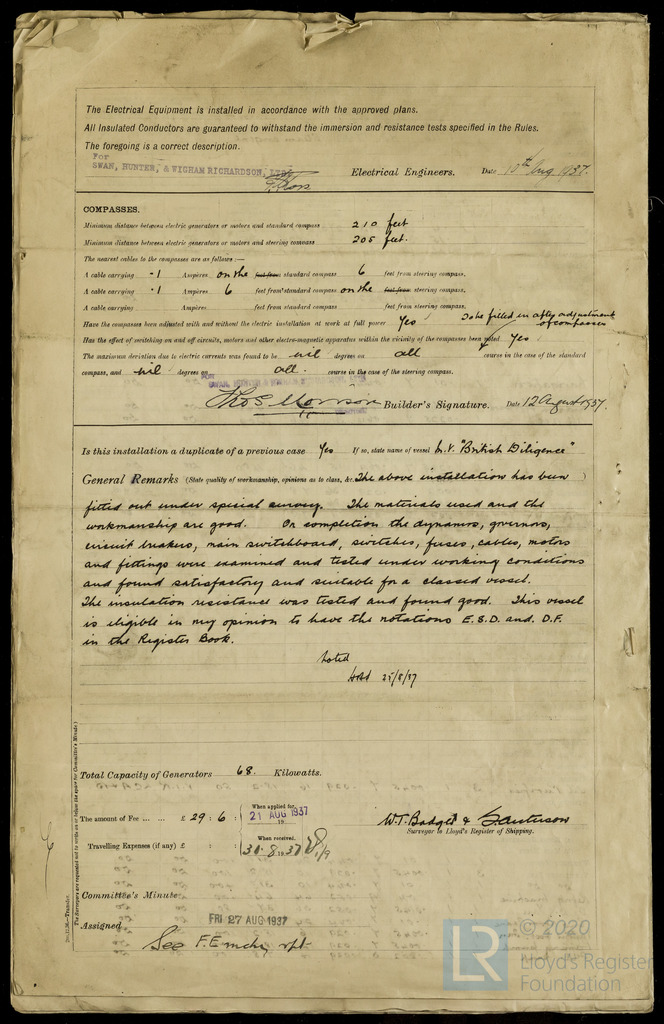 The Electrical Equipment is installed in accordance with the approved plans.
All Insulated Conductors are guaranteed to withstand the immersion and resistance tests specified in the Rules.
The foregoing is a correct description.
For
SWAN, HUNTER, & WIGHAM RICHARDSON, LTD.
Electrical Engineers. Date 10th Aug 1937.
COMPASSES.
Minimum distance between electric generators or motors and standard compass 210 feet
Minimum distance between electric generators or motors and steering compass 205 feet.
The nearest cables to the compasses are as follows:—
A cable carrying .1 Ampères on the feet from standard compass 6 feet from steering compass.
A cable carrying .1 Ampères 6 feet from standard compass on the feet from steering compass.
A cable carrying Ampères feet from standard compass feet from steering compass.
Have the compasses been adjusted with and without the electric installation at work at full power Yes To be filled in after adjustment of compasses
Has the effect of switching on and off circuits, motors and other electro-magnetic apparatus within the vicinity of the compasses been noted Yes
The maximum deviation due to electric currents was found to be nil degrees on all course in the case of the standard
compass, and nil degrees on all course in the case of the steering compass.
FOR
SWAN, HUNTER & WIGHAM RICHARDSON, LTD.
Thos Morrison Builder's Signature. Date 12 August 1937.
Is this installation a duplicate of a previous case Yes If so, state name of vessel M.V. "British Diligence"
General Remarks (State quality of workmanship, opinions as to class, &c. The above installation has been )
fitted out under special survey. The materials used and the
workmanship are good. On completion the dynamos, governors,
circuit breakers, main switchboard, switches, fuses, cables, motors
and fittings were examined and tested under working conditions
and found satisfactory and suitable for a classed vessel.
The insulation resistance was tested and found good. This vessel
is eligible in my opinion to have the notations E.S.D. and D.F.
in the Register Book.
Noted
25/8/37
Total Capacity of Generators 68. Kilowatts.
The amount of Fee ... ... £ 29 : 6 : When applied for, 21 AUG 1937
19
Travelling Expenses (if any) £ : : When received, 30.8.1937
W.T. Badger & Sanderson
Surveyor to Lloyd's Register of Shipping.
Committee's Minute
Assigned FRI 27 AUG 1937
See F.E mchy rpt
(The Surveyors are requested not to write on or below the space for Committee's Minute.)
© 2020
LR
Lloyd's Register
Foundation